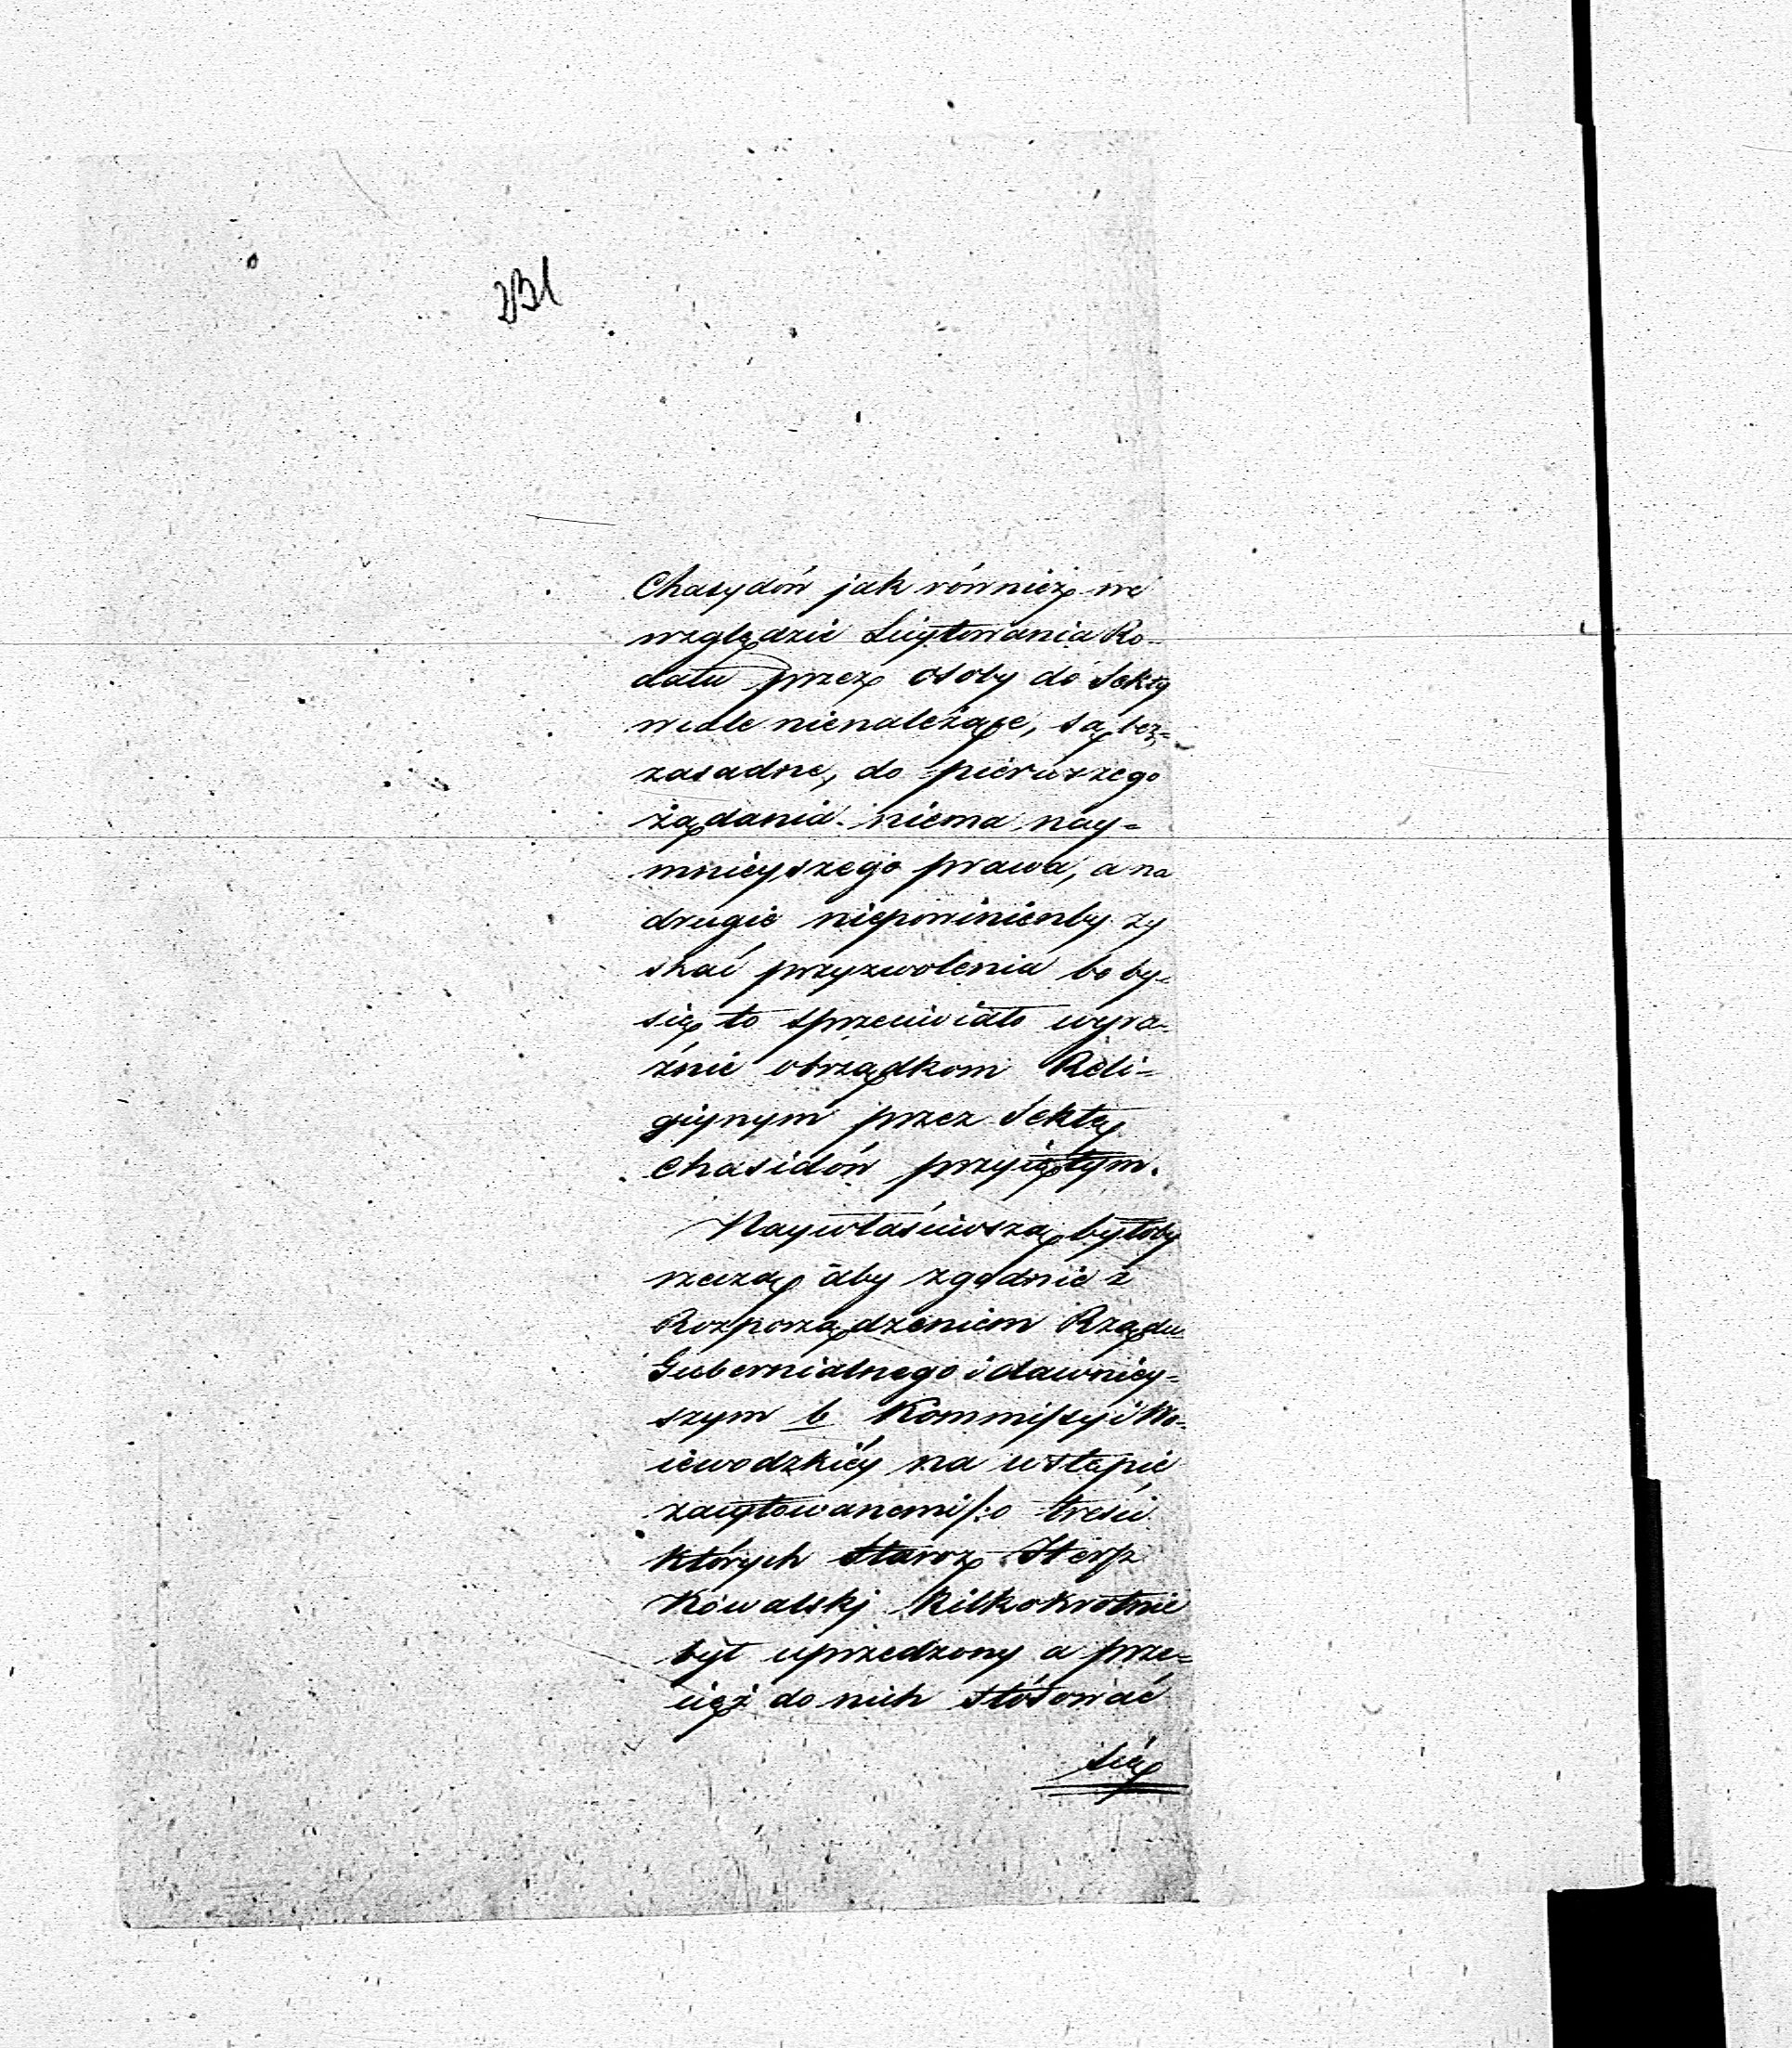 231
Chasydów jak również we
względzie Licytowania Ro-
dału przez osoby do Sekty
wcale nienależące, są bez=
zasadne, do pierwszego
żądania niema nay=
mnieyszego prawa, a na
drugie niepowinienby zy
skać przyzwolenia bo by-
się to sprzeciwiało wyra-
źnie obrządkom Reli-
giynym przez Sektę
Chasidów przyiętym.
Naywłaściwszą byłoby
rzeczą aby zgodnie z
Rozporządzeniem Rządu
Gubernialnego i dawniey=
szym b Kommissyi Wo-
iewodzkiéy na wstępie
zacytowanemi /:o treści
których Staroz Herſz
Kowalskj kilkokrotnie
był uprzedzony a prze=
cięż do nich stósować
się